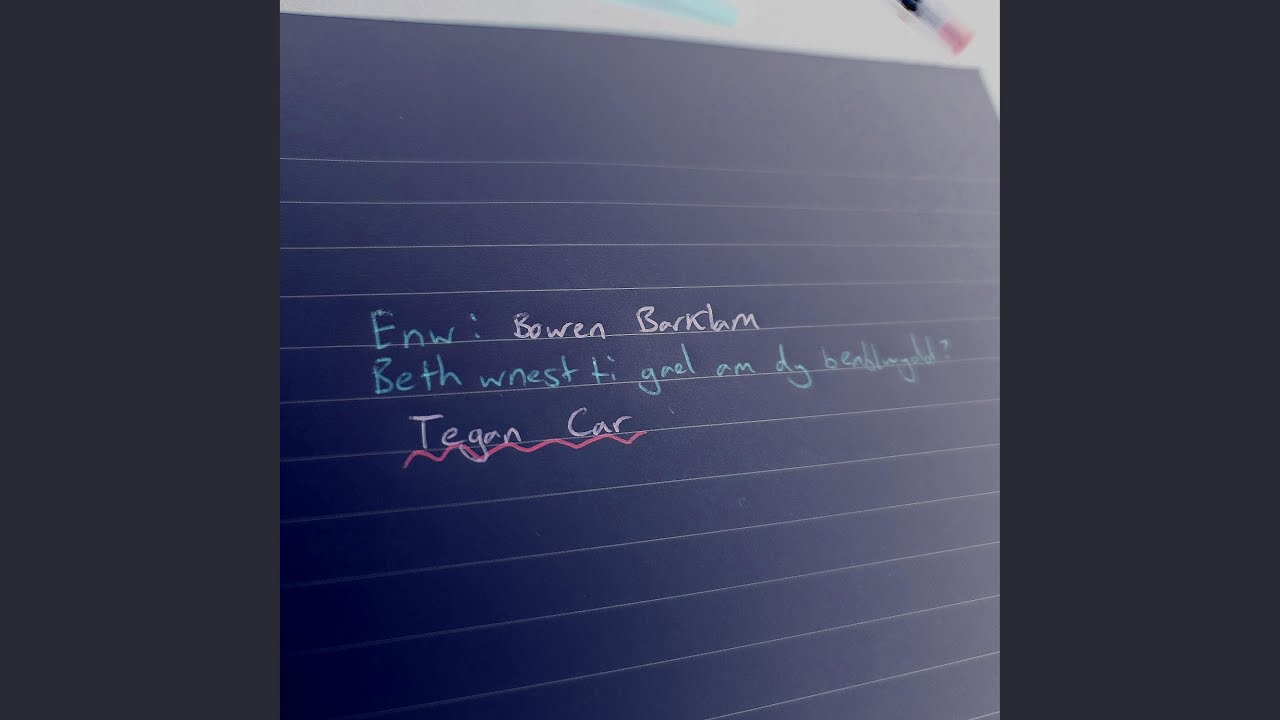 Enw: Bowen Barklam
Beth wnest ti gael am dy benblwydd?
Tegan Car